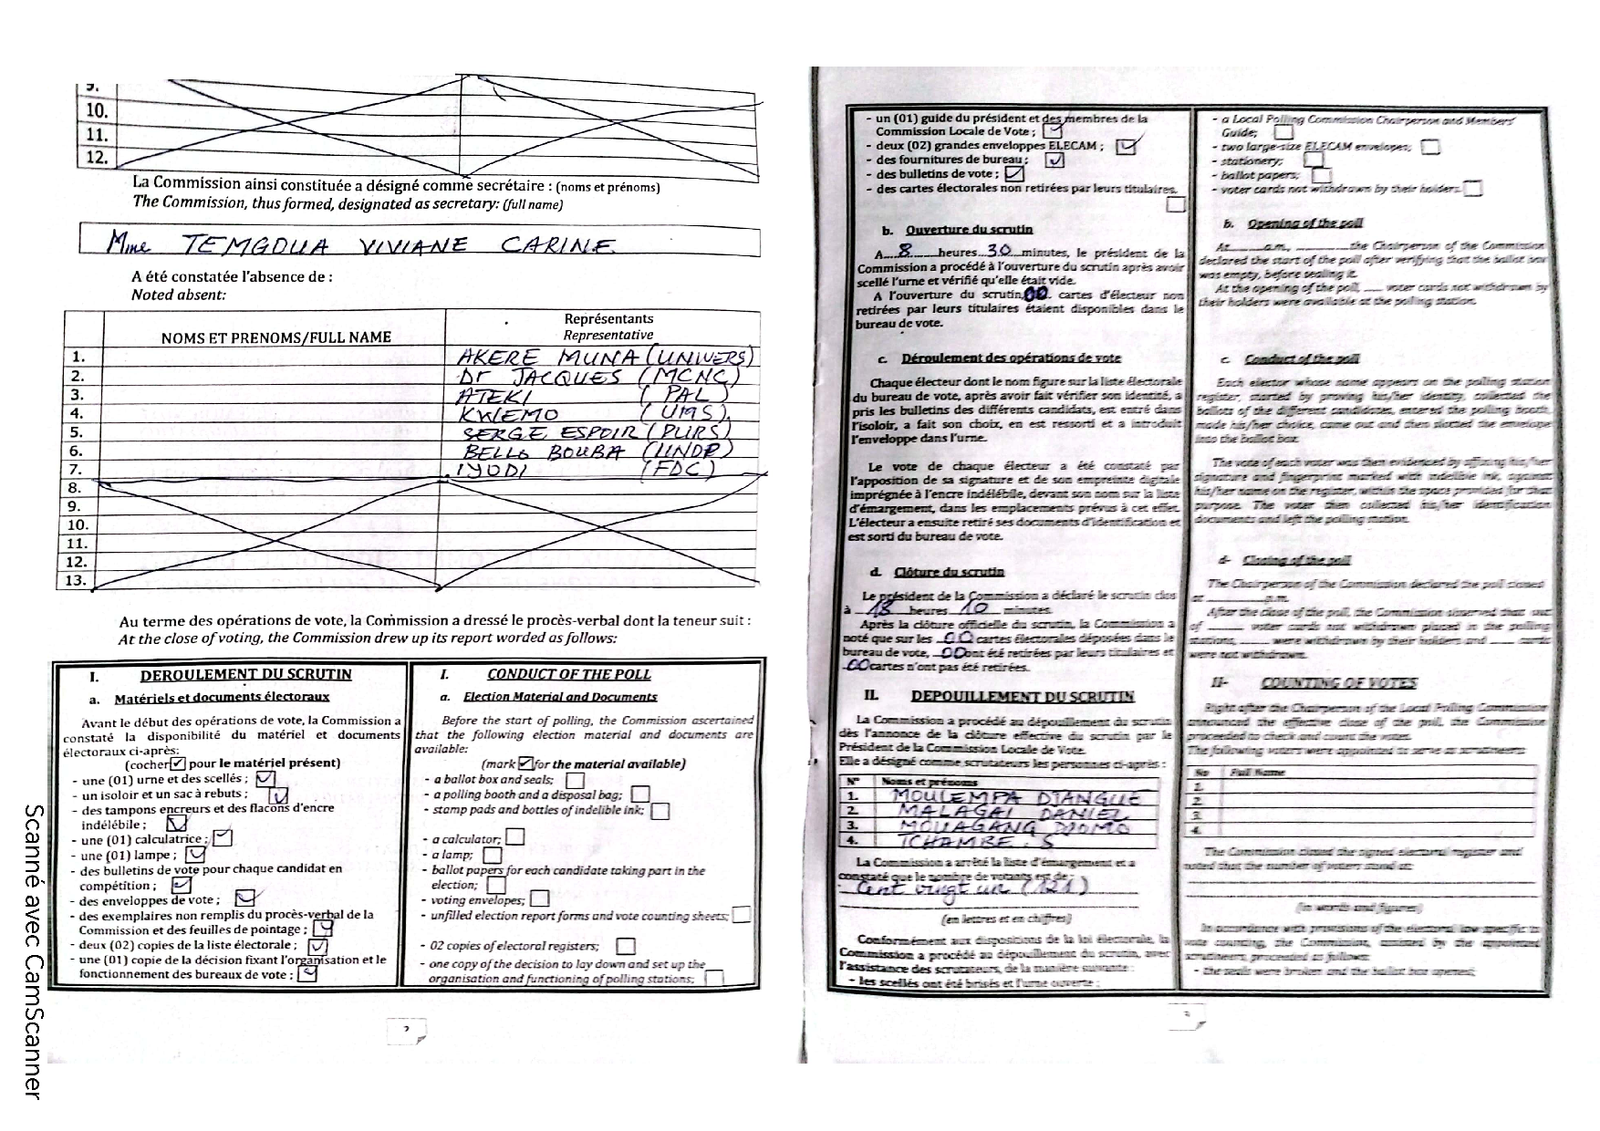 9.
10.
11.
12.
La Commission ainsi constituée a désigné comme secrétaire : (noms et prénoms)
The Commission, thus formed, designated as secretary: (full name)
Mme TEMGOUA VIVIANE CARINE
A été constatée l'absence de :
Noted absent:
NOMS ET PRENOMS/FULL NAME
Représentants
Representative
1. AKERE MUNA (UNIVERS)
2. Dr JACQUES (MCNC)
3. ATEKI (PAL)
4. KWEMO (UMS)
5. SERGE ESPOIR (PURS)
6. BELLO BOUBA (UNDP)
7. IYODI (FDC)
8.
9.
10.
11.
12.
13.
Au terme des opérations de vote, la Commission a dressé le procès-verbal dont la teneur suit :
At the close of voting, the Commission drew up its report worded as follows:
I. DEROULEMENT DU SCRUTIN
a. Matériels et documents électoraux
Avant le début des opérations de vote, la Commission a
constaté la disponibilité du matériel et documents
électoraux ci-après:
(cocher pour le matériel présent)
- une (01) urne et des scellés ;
- un isoloir et un sac à rebuts ;
- des tampons encreurs et des flacons d'encre
indélébile ;
- une (01) calculatrice ;
- une (01) lampe ;
- des bulletins de vote pour chaque candidat en
compétition ;
- des enveloppes de vote ;
- des exemplaires non remplis du procès-verbal de la
Commission et des feuilles de pointage ;
- deux (02) copies de la liste électorale ;
- une (01) copie de la décision fixant l'organisation et le
fonctionnement des bureaux de vote ;
I. CONDUCT OF THE POLL
a. Election Material and Documents
Before the start of polling, the Commission ascertained
that the following election material and documents are
available:
(mark for the material available)
- a ballot box and seals;
- a polling booth and a disposal bag;
- stamp pads and bottles of indelible ink;
- a calculator;
- a lamp;
- ballot papers for each candidate taking part in the
election;
- voting envelopes;
- unfilled election report forms and vote counting sheets;
- 02 copies of electoral registers;
- one copy of the decision to lay down and set up the
organisation and functioning of polling stations;
2
- un (01) guide du président et des membres de la
Commission Locale de Vote ;
- deux (02) grandes enveloppes ELECAM ;
- des fournitures de bureau ;
- des bulletins de vote ;
- des cartes électorales non retirées par leurs titulaires.
b. Ouverture du scrutin
A 8 heures 30 minutes, le président de la
Commission a procédé à l'ouverture du scrutin après avoir
scellé l'urne et vérifié qu'elle était vide.
A l'ouverture du scrutin, 00 cartes d'électeur non
retirées par leurs titulaires étaient disponibles dans le
bureau de vote.
c. Déroulement des opérations de vote
Chaque électeur dont le nom figure sur la liste électorale
du bureau de vote, après avoir fait vérifier son identité, a
pris les bulletins des différents candidats, est entré dans
l'isoloir, a fait son choix, en est ressorti et a introduit
l'enveloppe dans l'urne.
Le vote de chaque électeur a été constaté par
l'apposition de sa signature et de son empreinte digitale
imprégnée à l'encre indélébile, devant son nom sur la liste
d'émargement, dans les emplacements prévus à cet effet.
L'électeur a ensuite retiré ses documents d'identification et
est sorti du bureau de vote.
d. Clôture du scrutin
Le président de la Commission a déclaré le scrutin clos
à 18 heures 10 minutes.
Après la clôture officielle du scrutin, la Commission a
noté que sur les 00 cartes électorales déposées dans le
bureau de vote, 00 ont été retirées par leurs titulaires et
00 cartes n'ont pas été retirées.
II. DEPOUILLEMENT DU SCRUTIN
La Commission a procédé au dépouillement du scrutin
dès l'annonce de la clôture effective du scrutin par le
Président de la Commission Locale de Vote.
Elle a désigné comme scrutateurs les personnes ci-après :
N° Noms et prénoms
1. MOULEMPA DJANGUE
2. MALAGAI DANIEL
3. MOUAGANG DJOMO
4. TCHAMBE . S
La Commission a arrêté la liste d'émargement et a
constaté que le nombre de votants est de :
Cent vingt un (121)
(en lettres et en chiffres)
Conformément aux dispositions de la loi électorale, la
Commission a procédé au dépouillement du scrutin, avec
l'assistance des scrutateurs, de la manière suivante :
- les scellés ont été brisés et l'urne ouverte ;
- a Local Polling Commission Chairperson and Members'
Guide;
- two large-size ELECAM envelopes;
- stationery;
- ballot papers;
- voter cards not withdrawn by their holders.
b. Opening of the poll
At a.m, the Chairperson of the Commission
declared the start of the poll after verifying that the ballot box
was empty, before sealing it.
At the opening of the poll, voter cards not withdrawn by
their holders were available at the polling station.
c. Conduct of the poll
Each elector whose name appears on the polling station
register, started by proving his/her identity, collected the
ballots of the different candidates, entered the polling booth,
made his/her choice, came out and then slotted the envelope
into the ballot box.
The vote of each voter was then evidenced by affixing his/her
signature and fingerprint marked with indelible ink, against
his/her name on the register, within the space provided for that
purpose. The voter then collected his/her identification
documents and left the polling station.
d- Closing of the poll
The Chairperson of the Commission declared the poll closed
at p.m.
After the close of the poll, the Commission observed that out
of voter cards not withdrawn placed in the polling
stations, were withdrawn by their holders and cards
were not withdrawn.
II- COUNTING OF VOTES
Right after the Chairperson of the Local Polling Commission
announced the effective close of the poll, the Commission
proceeded to check and count the votes.
The following voters were appointed to serve as scrutineers:
No Full Name
1.
2.
3.
4.
The Commission closed the signed electoral register and
noted that the number of voters stood at:
(in words and figures)
In accordance with provisions of the electoral law specific to
vote counting, the Commission, assisted by the appointed
scrutineers, proceeded as follows:
- the seals were broken and the ballot box opened;
3
Scanné avec CamScanner